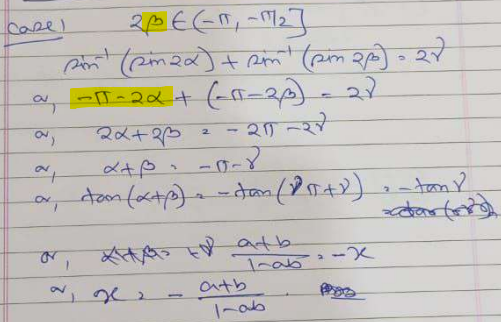 Case 1 2β ∈ (-π, -π/2]
sin⁻¹(sin2α) + sin⁻¹(sin2β) = 2γ
or, -π-2α + (-π-2β) = 2γ
or, 2α+2β = -2π-2γ
or, α+β = -π-γ
or, tan(α+β) = -tan(π+γ) = -tanγ
or, a+b/1-ab = -x
or, x = - a+b/1-ab .